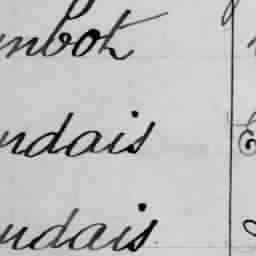 mbot
ndais
ndais